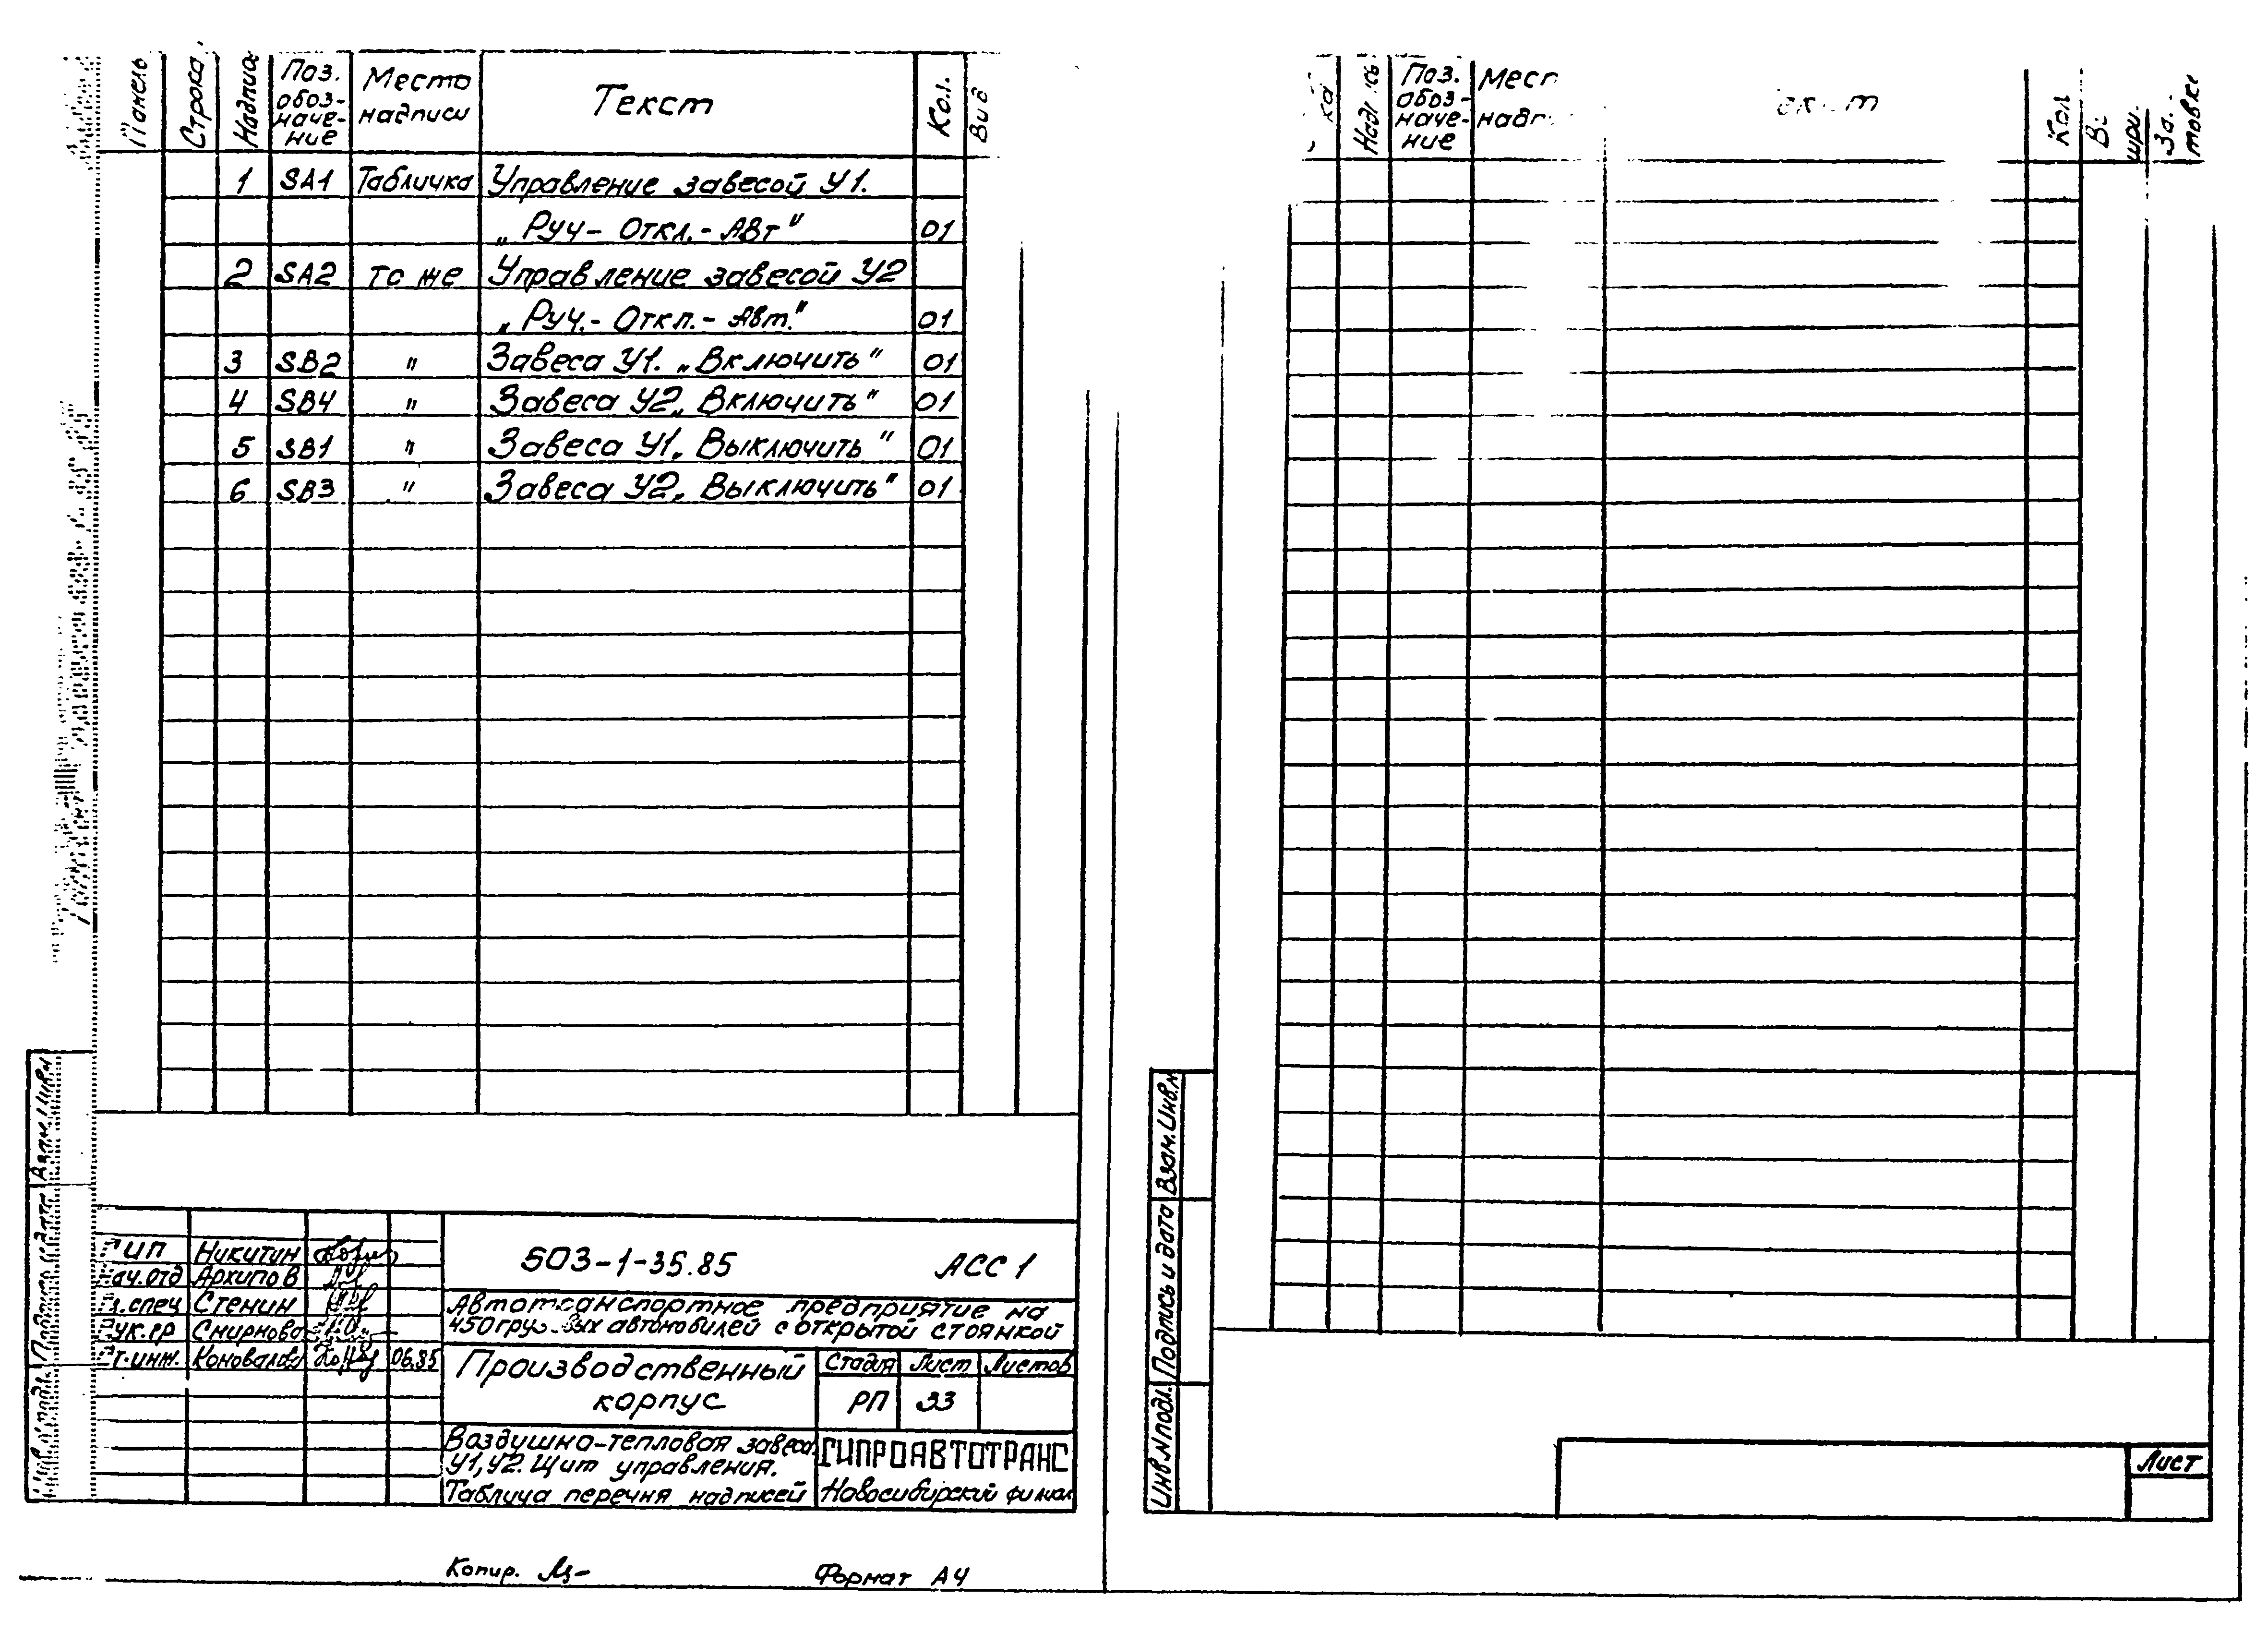 Панель Строка Надпись Поз. обоз- наче- ние Место надписи Текст Кол. Вид
1 SA1 Табличка Управление завесой У1.
„Руч- Откл.- Авт" 01
2 SA2 то же Управление завесой У2
„Руч.- Откл.- Авт." 01
3 SB2 " Завеса У1. „Включить" 01
4 SB4 " Завеса У2 „Включить" 01
5 SB1 " Завеса У1 „Выключить" 01
6 SB3 " Завеса У2 „Выключить" 01
Взам. Инв. №
Подпись и дата
ГИП Никитин
Нач. отд Архипов
Гл. спец Стенин
Рук. гр Смирнова
Ст. инж. Коновалова 06.85
503-1-35.85 АСС 1
Автотранспортное предприятие на
450 грузовых автомобилей с открытой стоянкой
Производственный
корпус
Стадия Лист Листов
РП 33
Воздушно-тепловая завеса
У1, У2. Щит управления.
Таблица перечня надписей
ГИПРОАВТОТРАНС
Новосибирский филиал
Копир.
Формат А4
Поз. обоз- наче- ние
Кол
Взам. Инв. №
Подпись и дата
Инв. № подл.
Лист